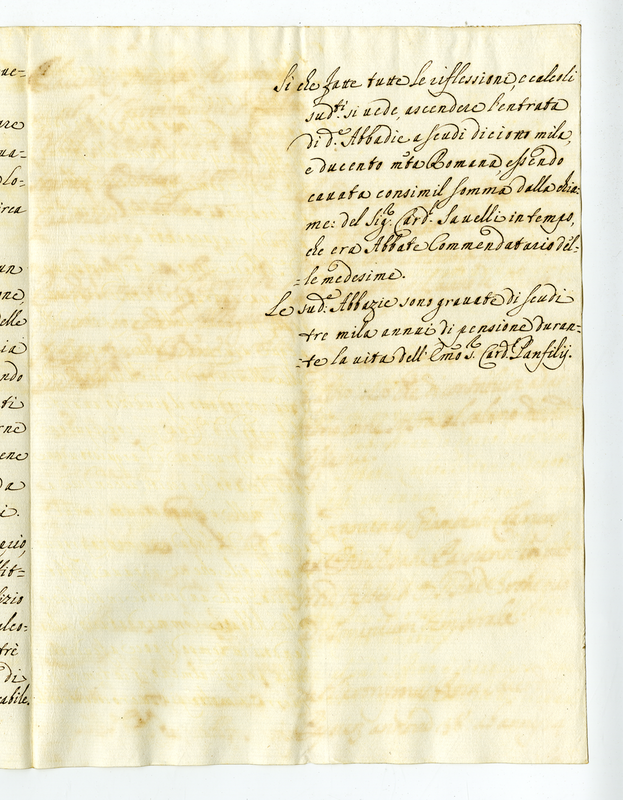 ue=
are
ua=
lo=
irca
un
one,
delle
ia
ndo
ti
rne
ene
da
i.
acio,
fit=
izio
alco=
trè
di
cabile.
Si che fatte tutte le riflessione, e calcoli
sud.ti si uede, ascendere l'entrata
di d.e Abbadie a scudi diciono mila,
e ducento m.ta Romana, essendo
cauata consimil somma dalla chia=
me: del Sig.r Card.l Sauelli in tempo,
che era Abbate Commendatario del=
=le medesime.
Le sud.e Abbazie sono grauate di scudi
tre mila annui di pensione duran=
=te la uita dell' Emo s.r Card.l Panfilij.